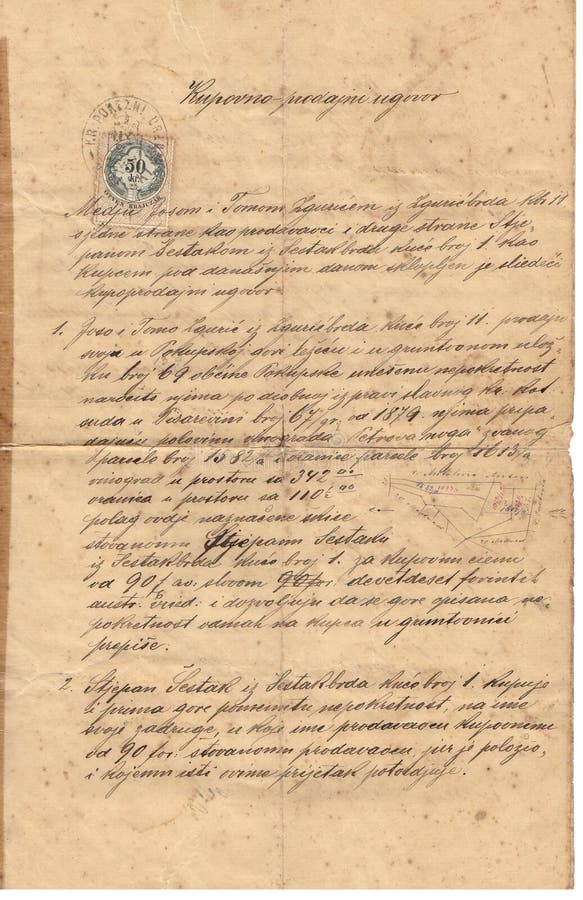 Kupovno-prodajni ugovor
KR. POREZNI URED
50
kr.
ÖTVEN KRAJCZÁR
Medju Josom i Tomom Zgurićem iz Zgurićbrda kbr 11
s jedne strane kao prodavaoci i druge strane Stje-
panom Šestakom iz Šestakbrda kuć. broj 1. kao
kupcem pod današnjim danom sklopljen je sliedeći
kupoprodajni ugovor
1. Joso i Tomo Zgurić iz Zgurićbrda kućo broj 11. prodaju
svoju u Pokupskoj gori ležeću i u gruntovnom ulož-
ku broj 69 obćine Pokupske unešenu nepokretnost
naročito njima po diobnoj izpravi slavnog kr. kot.
suda u Pisarovini broj 67/gr. od 1879. njima pripa-
dajuću polovinu vinograda "Petrova noga" zvanog
parcele broj 1582/a i oranice parcele broj 1613/a
vinograd u prostoru sa 342
oranica u prostoru sa 110
polag ovdje naznačene skice
štovanomu Stjepanu Šestaku
iz Šestakbrda kućo broj 1. za kupovnu cienu
od 90 f. av. slovom devetdeset forintih
austr. vried: i dozvoljuju da se gore opisana ne-
pokretnost odmah na kupca u gruntovnici
prepiše.
2. Stjepan Šestak iz Šestakbrda kućo broj 1. kupuje
i prima gore pomenutu nepokretnost, na ime
svoje zadruge, u koje ime prodavaocu kupovninu
od 90 for: štovanomu prodavaocu, jur je položio,
i kojemu isti ovime prijetak potvrdjuje.